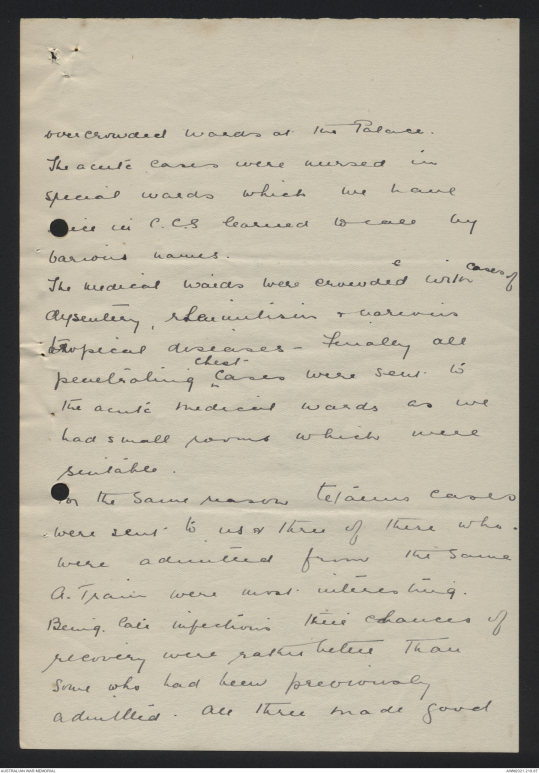 overcrowded wards at the Palace.
The acute cases were nursed in
special wards which we have
since in C.C.S learned to call by
various names.
The medical wards were crowded with cases of
dysentery, rheumitisim + various
tropical diseases - Finally all
penetrating chest cases were sent to
the acute medical wards as we
had small rooms which were
suitable.
For the same reason tetanus cases
were sent to us & three of these who
were admitted from the same
A. Train were most interesting.
Being late infections their chances of
recovery were rather better than
some who had been previously
admitted. All three made good
AUSTRALIAN WAR MEMORIAL